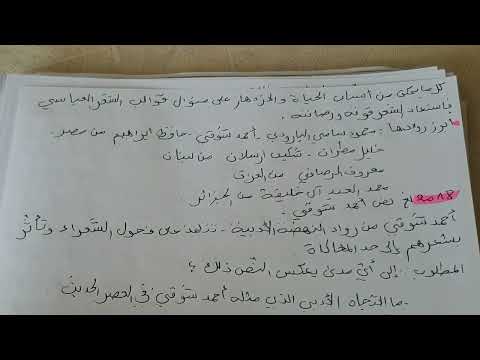 كل ما يمكن من أسباب الحياة والازدهار على منوال قوالب الشعر العباسي
فاستعاد الشعر قوته ورصانته.
أبرز روادها: محمود سامي البارودي - أحمد شوقي - حافظ ابراهيم من مصر
خليل مطران - شكيب ارسلان من لبنان
معروف الرصافي من العراق
محمد العيد آل خليفة من الجزائر
2018 نص أحمد شوقي:
أحمد شوقي من رواد النهضة الأدبية - تتلمذ على فحول الشعراء وتأثر
بشعرهم إلى حد المحاكاة
المطلوب: إلى أي مدى يعكس النص ذلك؟
- ما الاتجاه الأدبي الذي مثله أحمد شوقي في العصر الحديث